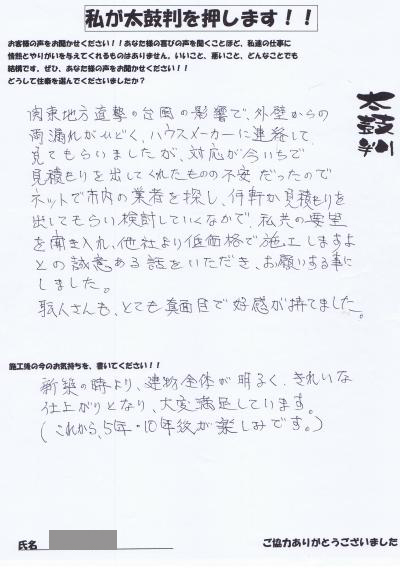 私が太鼓判を押します！！
お客様の声をお聞かせください！！あなた様の喜びの声を聞くことほど、私達の仕事に
情熱とやりがいを与えてくれるものはありません。いいこと、悪いこと、どんなことでも
結構です。ぜひ、あなた様の声をお聞かせください！！
どうして住泰を選んでくださいましたか？
太鼓判
関東地方直撃の台風の影響で、外壁からの
雨漏れがひどく、ハウスメーカーに連絡して
見てもらいましたが、対応が今いちで
見積もりを出してくれたものの不安だったので
ネットで市内の業者を探し、何軒か見積もりを
出してもらい検討していくなかで、私共の要望
を聞き入れ、他社より低価格で施工しますよ
との誠意ある話をいただき、お願いする事に
しました。
職人さんも、とても真面目で好感が持てました。
施工後の今のお気持ちを、書いてください！！
新築の時より、建物全体が明るく、きれいな
仕上がりとなり、大変満足しています。
(これから、5年・10年後が楽しみです。)
氏名
ご協力ありがとうございました